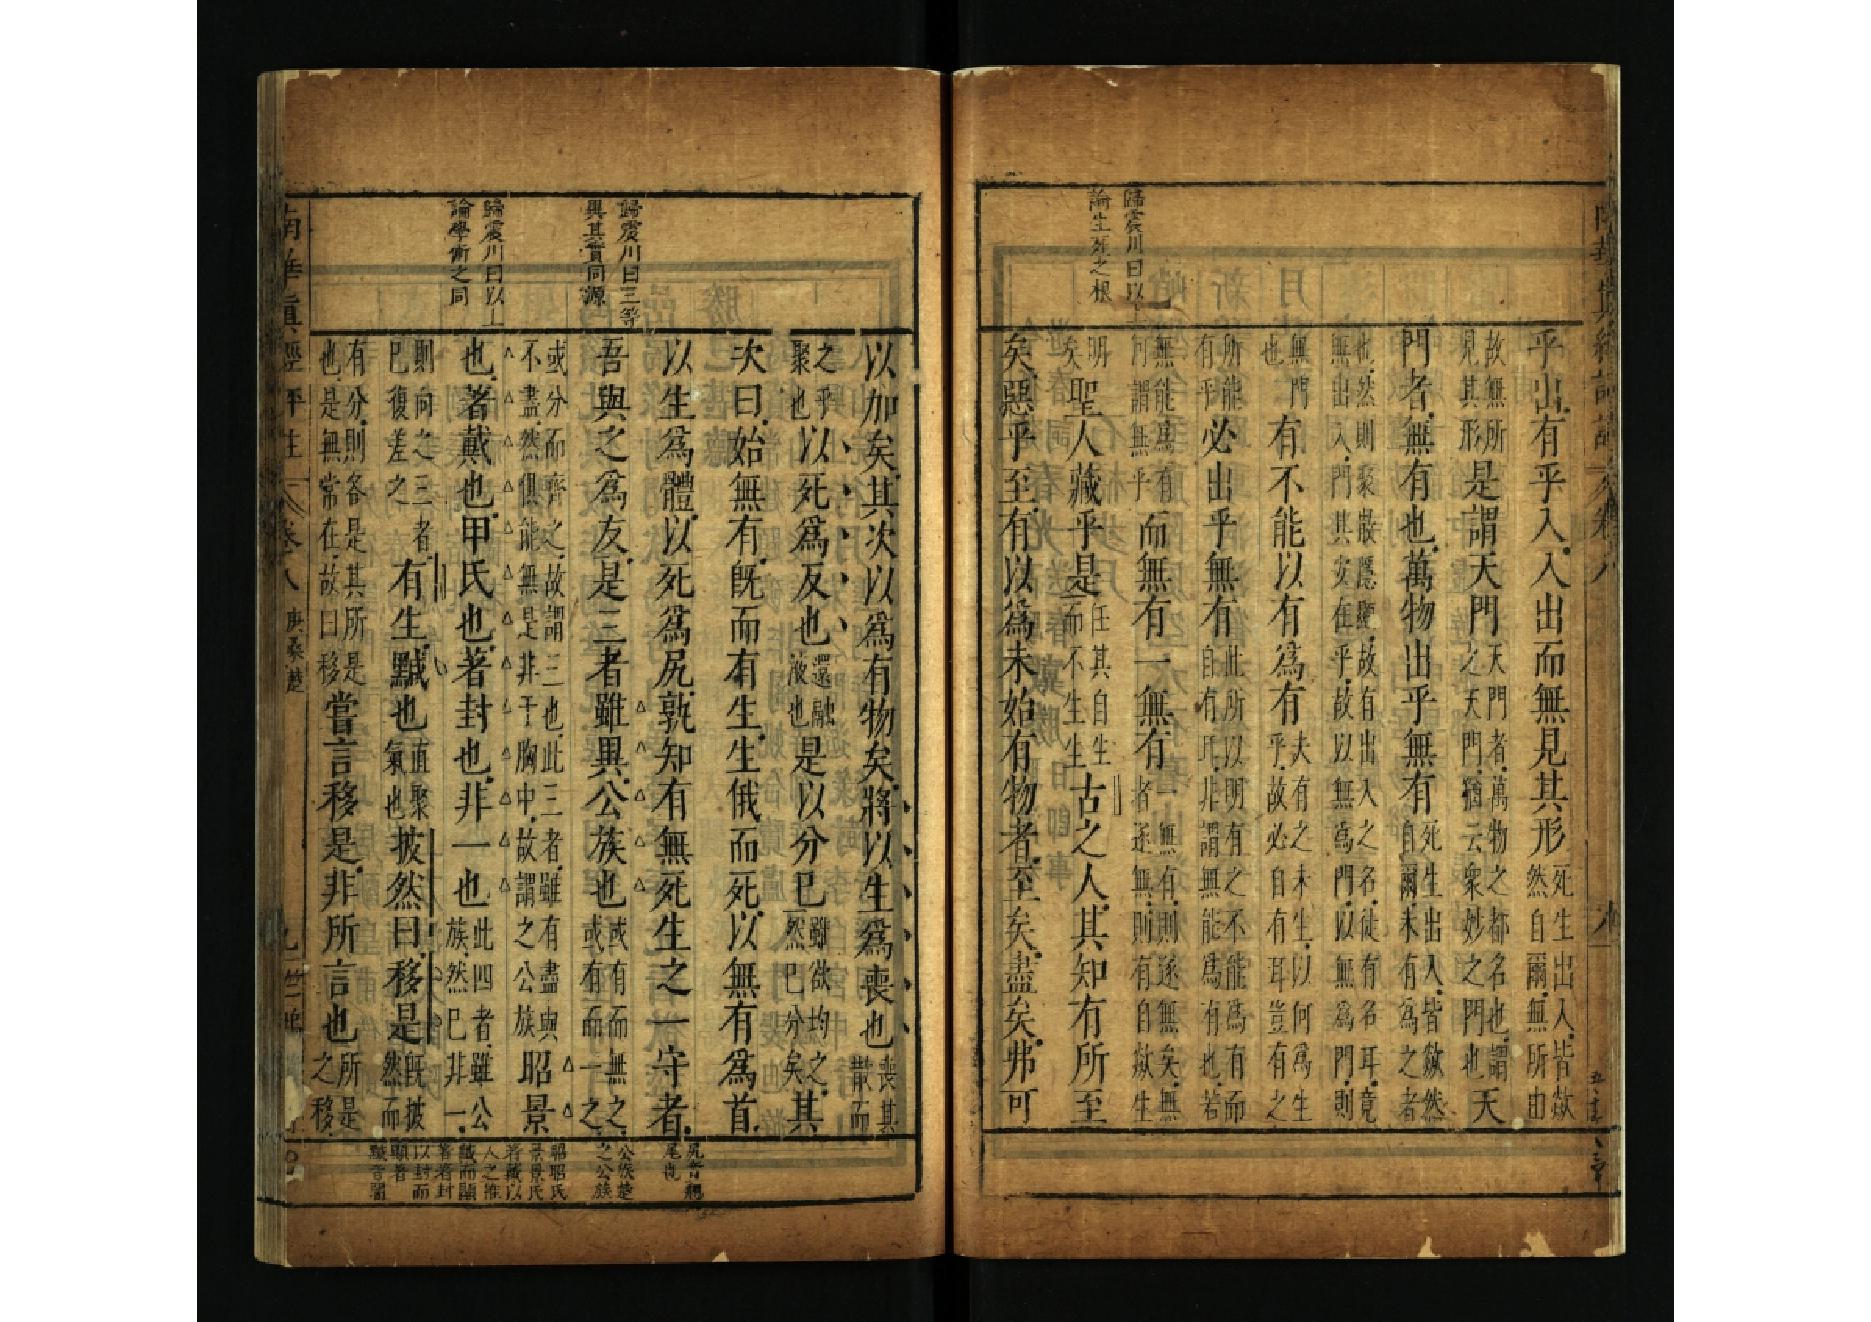 南華眞經評註 卷八
歸震川曰以
論生死之根
乎出有乎入入出而無見其形死生出入皆欻
然自爾無所由
故無所
見其形
是謂天門天門者萬物之都名也謂
之天門猶云衆妙之門也
天
門者無有也萬物出乎無有死生出入皆欻然
自爾未有爲之者
也然則聚散隱顯故有出入之名徒有名耳竟
無出入門其安在乎故以無爲門以無爲門則
無門
也
有不能以有爲有夫有之未生以何爲生
乎故必自有耳豈有之
所能
有乎
必出乎無有此所以明有之不能爲有而
自有耳非謂無能爲有也若
無能爲有
何謂無乎
而無有一無有一無有則遂無矣無
者遂無則有自欻生
明
矣
聖人藏乎是任其自生
而不生生
古之人其知有所至
矣惡乎至有以爲未始有物者至矣盡矣弗可
以加矣其次以爲有物矣將以生爲喪也喪其
散而
之乎
聚也
以死爲反也還融
液也
是以分已雖欲均之
然已分矣
其
次曰始無有既而有生生俄而死以無有爲首
以生爲體以死爲尻孰知有無死生之一守者
尻音
尾也
歸震川曰三等
異其實同源
吾與之爲友是三者雖異公族也或有而無之
或有而一之
公族楚
之公族
或分而齊之故謂三也此三者雖有盡與
不盡然俱能無是非于胸中故謂之公族
昭景
昭昭氏
景景氏
著戴以
人之推
戴而顯
著著封
以封而
顯著
黬音闇
歸震川曰以上
論學術之同
也著戴也甲氏也著封也非一也此四者雖公
族然已非一
則向之三者
已復差之
有生黬也直聚
氣也
披然曰移是既披
然而
有分則各是其所是
也是無常在故曰移
嘗言移是非所言也所是
之移
南華眞經評註 卷八 庚桑楚